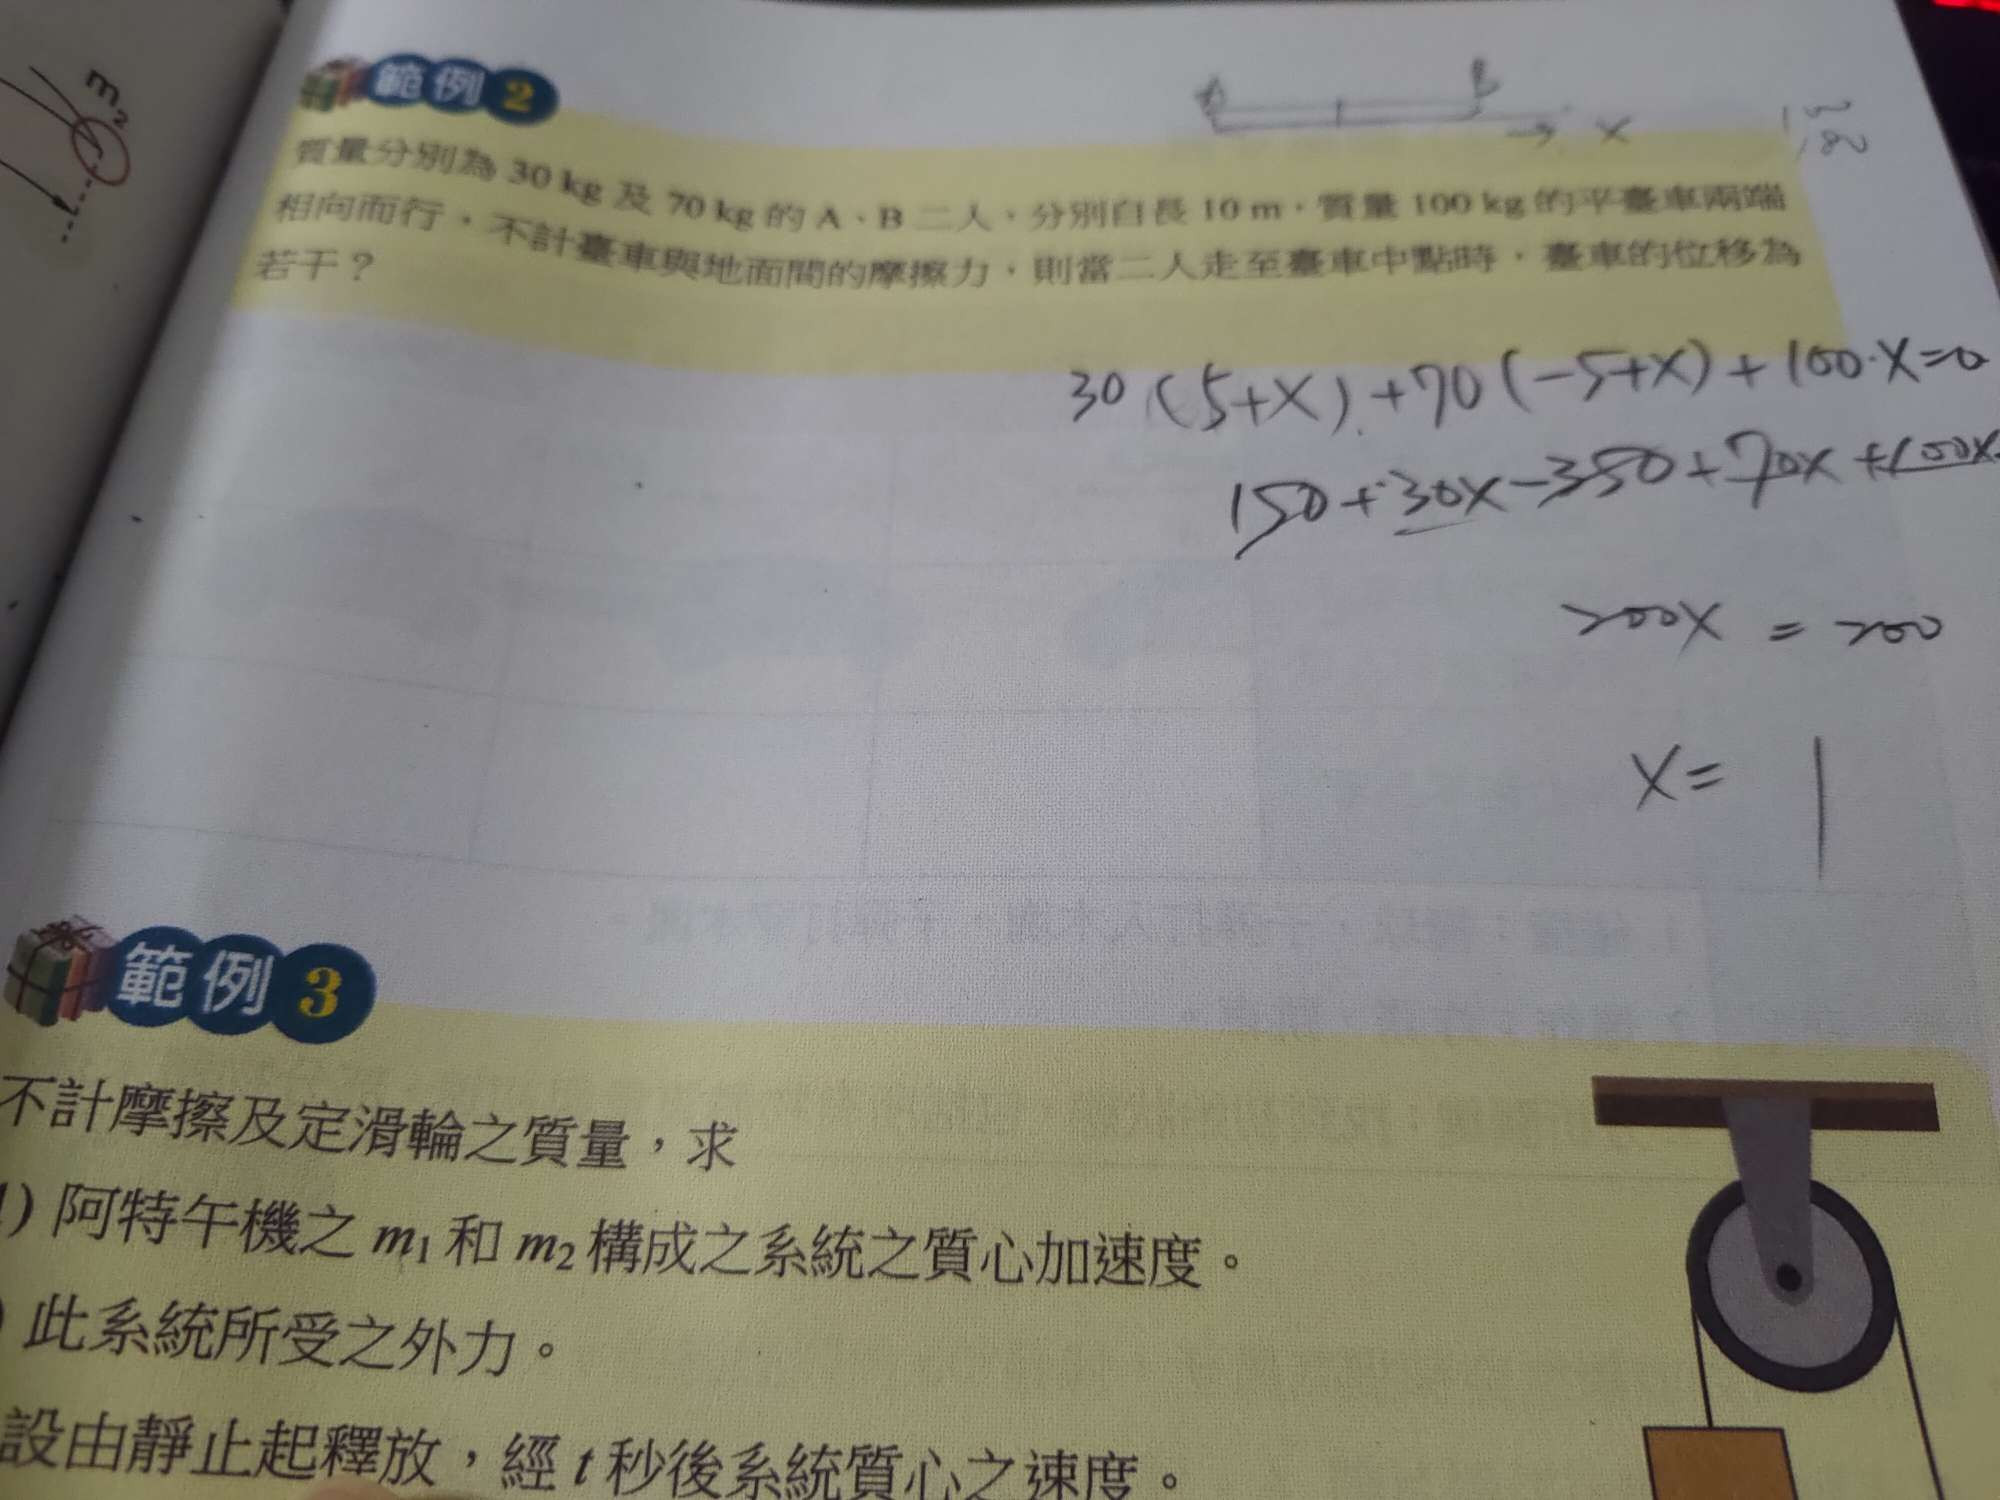 m₂
範例 2
A B
→ X
質量分別為 30 kg 及 70 kg 的 A、B 二人，分別自長 10 m，質量 100 kg 的平臺車兩端
相向而行，不計臺車與地面間的摩擦力，則當二人走至臺車中點時，臺車的位移為
若干？
30(5+X)+70(-5+X)+100·X=0
150+30X-350+70X+100X
200X = 200
X= 1
範例 3
不計摩擦及定滑輪之質量，求
1) 阿特午機之 m₁ 和 m₂ 構成之系統之質心加速度。
) 此系統所受之外力。
設由靜止起釋放，經 t 秒後系統質心之速度。